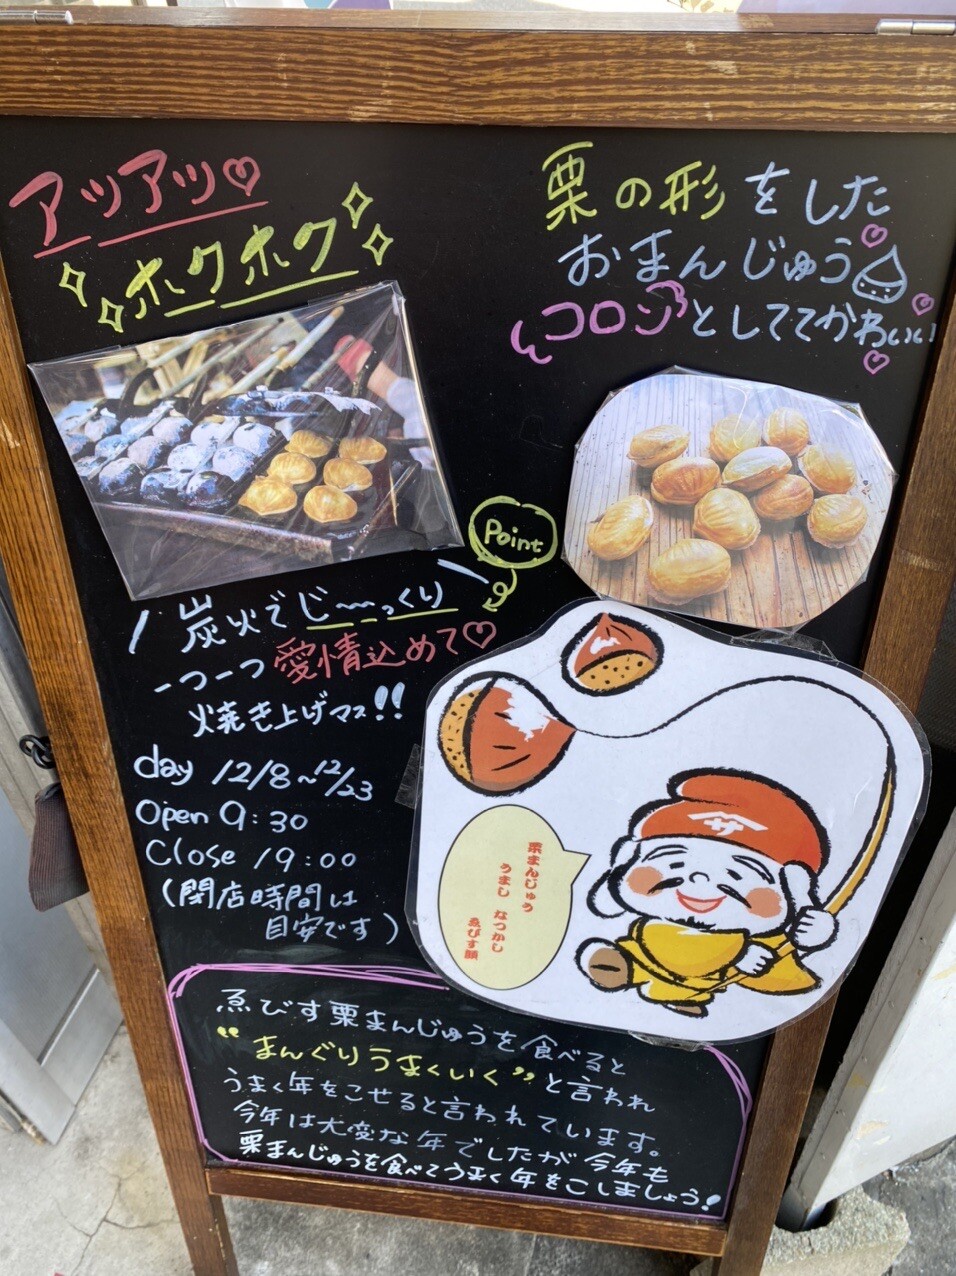 アツアツ♡
ホクホク
栗の形をした
おまんじゅう
コロンとしててかわいい
Point
炭火でじ〜〜っくり
一つ一つ愛情込めて♡
焼き上げマス!!
day 12/8~12/23
Open 9:30
Close 19:00
(閉店時間は
目安です)
栗まんじゅう
うまし なつかし
ゑびす顔
サ
ゑびす栗まんじゅうを食べると
“まんぐりうまくいく”と言われ
うまく年をこせると言われています。
今年は大変な年でしたが今年も
栗まんじゅうを食べてうまく年をこしましょう!